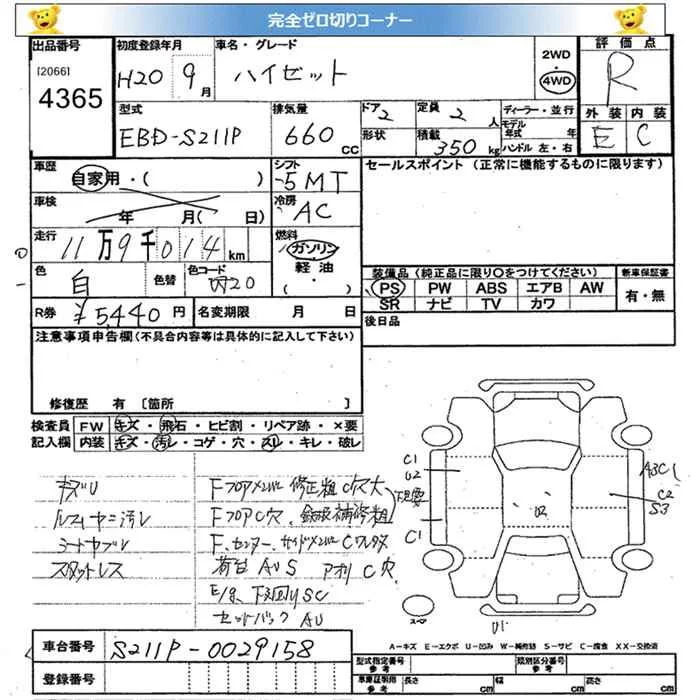 完全ゼロ切りコーナー
出品番号
[2066]
4365
初度登録年月
H20年9月
車名・グレード
ハイゼット
2WD
4WD
評価点
R
外装 内装
E C
型式
EBD-S211P
排気量
660cc
ドア 2
形状
定員 2人
積載 350kg
ディーラー・並行
モデル年式 年
ハンドル 左・右
車歴
自家用・( )
シフト
5MT
セールスポイント(正常に機能するものに限ります)
車検
年 月( 日)
冷房
AC
走行
11万9千014km
燃料
ガソリン
軽油
( ・ )
色
白
色替
色コード
W20
装備品(純正品に限り○をつけてください)
PS PW ABS エアB AW
SR ナビ TV カワ
新車保証書
有・無
R券 ¥5,440円
名変期限 月 日
後日品
注意事項申告欄(不具合内容等は具体的に記入して下さい)
修復歴 有 〔箇所 〕
検査員記入欄
FW キズ・飛石・ヒビ割・リペア跡・×要
内装 キズ・汚レ・コゲ・穴・スレ・キレ・破レ
キズU
ルームヤニ汚レ
シートヤブレ
スタットレス
Fフロアメンバー修正粗C穴大
FフロアC穴、鈑金補修粗
F、センター、サイドメンバーC
荷台AUS アオリC穴
E/g、下回りSC
セットバックAU
C1
U2
C1
U2
A3C1
C2
S3
U1
スペア
A-キズ E-エクボ U-凹み W-補修跡 S-サビ C-腐食 XX-交換済
車台番号
S211P-0029158
登録番号
型式指定番号
参考
類別区分番号
参考
車庫証明用
参考
長さ cm
幅 cm
高さ cm